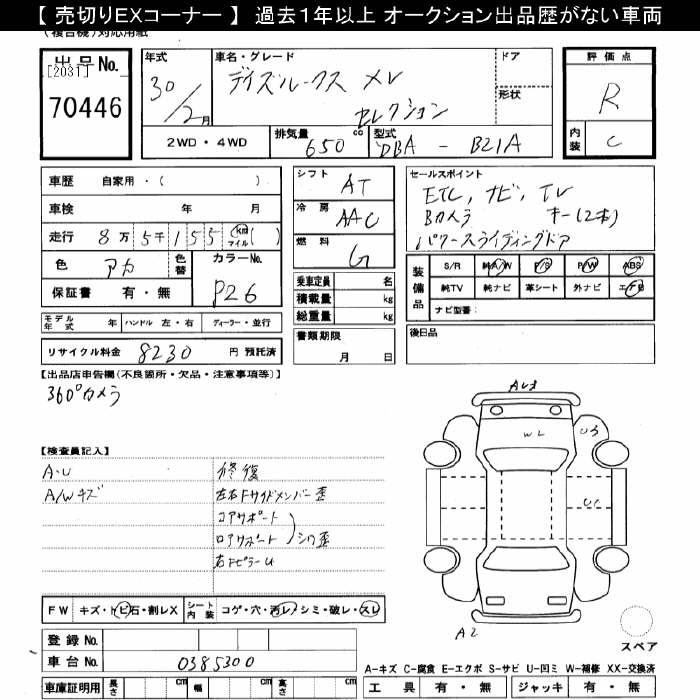 【 売切りEXコーナー 】 過去１年以上 オークション出品歴がない車両
(複合機)対応用紙
出品No.
[2031]
70446
年式
30/2月
車名・グレード
デイズルークス メV
セレクション
ドア
形状
評価点
R
内装
C
2WD・4WD
排気量
650
cc
型式
DBA - B21A
車歴 自家用・( )
車検 年 月
走行 8万5千155 km マイル ( )
色 アカ 色替
カラーNo.
P26
保証書 有・無
シフト
AT
冷房
AAC
燃料
G
セールスポイント
ETC, ナビ, TV
Bカメラ キー(2本)
パワースライディングドア
装備品
S/R 純A/W P/S P/W ABS
純TV 純ナビ 革シート 外ナビ エアB
ナビ型番:
乗車定員 名
積載量 kg
総重量 kg
モデル年式 年 ハンドル 左・右 ディーラー・並行
リサイクル料金 8230 円 預託済
書類期限
月 日
後日品
【出品店申告欄(不良箇所・欠品・注意事項等)】
360°カメラ
【検査員記入】
A・U 修復
A/Wキズ 左右Fサイドメンバー歪
コアサポート
ロアサポート シワ歪
右FピラーU
AU3
WL
U3
A2
FW キズ・トビ石・割レX
シート内装 コゲ・穴・汚レ・シミ・破レ・スレ
スペア
登録No.
車台No. 0385300
A-キズ C-腐食 E-エクボ S-サビ U-凹ミ W-補修 XX-交換済
車庫証明用 長さ cm 幅 cm 高さ cm
工具 有・無 ジャッキ 有・無